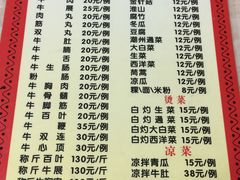 牛肉 15元/例
牛展 25元/例
肉丸 20元/例
双丸 20元/例
牛肚 20元/例
牛腩 20元/例
牛舌 20元/例
牛生肠 20元/例
粉肠 20元/例
牛胸肉 20元/例
牛骨髓 20元/例
牛脚筋 20元/例
牛百叶 30元/例
牛鞭 35元/例
牛双连 30元/例
牛心顶 30元/例
称斤百叶 130元/斤
称斤牛展 130元/斤
金针菇 12元/例
淮山 12元/例
腐竹 12元/例
冬瓜 12元/例
豆腐 12元/例
潮州通菜 12元/例
大白菜 12元/例
生菜 12元/例
西洋菜 12元/例
茼蒿 12元/例
凉瓜 12元/例
粿面\米粉 8元/例
烫菜
白灼生菜 15元/例
白灼通菜 15元/例
白灼大白菜 15元/例
白灼西洋菜 15元/例
凉菜
凉拌青瓜 15元/例
凉拌牛肚 38元/例